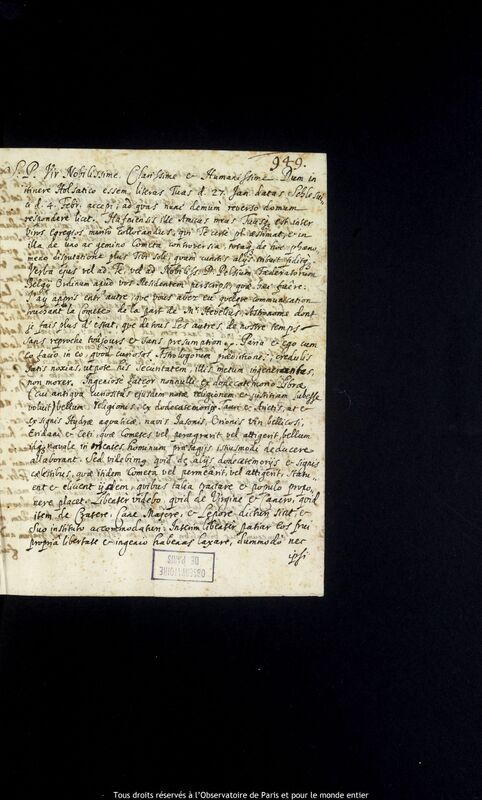 949.
S. P. Vir Nobilissime. Clarissime & Humanissime. Dum in
itinere Holsatico essem, literas Tuas d. 27. Jan. datas
d. 4. Febr. accepi, ad quas nunc demum reverso domum
respondere licet. Hafniensis ille Amicus meus est inter
viros egregios merito collocandus, qui Te certe aestimat, & in
illa de uno ac gemino Cometa controversia, de hoc phaeno
meno disputatione plus Tibi soli, quam cunctis aliis
Verba ejus vel ad Te, vel ad Nobiliss. D. Foederatorum
Belgii Ordinum apud vos Residentem perscripsi, quae
J'ay appris entr'autre que vous avez eu quelque communication
touchant la Comete de la part de Mr. Hevelius, Astronome dont
je fais plus d'estat, que de tous les autres de nostre temps
sans reproche toujours & sans presumtion. Paria & ego cum
Eo faveo in eo, quod curiosas Astrologorum praedictiones, credulis
satis noxias, utpote his securitatem, illis metum ingenerantes,
non morer. Ingeniose fateor nonnulli ex dodecatemorio Librae
(cui antiqua curiositas ejusdem nota religionem & justitiam subesse
voluit) bellum religionis, ex dodecatemoriis Tauri & Arietis, at &
ex signis Hydrae aquaticae, navis Jasonis, Orionis viri bellicosi,
Eridani & Ceti, quae Cometes vel peragravit vel attigerit, bellum
navale in hominum praesagiis istiusmodi deducere
allaborant. Sed viderimus quid de aliis dodecatemoriis & signis
caelestibus, quae itidem Cometa vel permearit, vel attigerit, statu
ent & eliciant iidem, quibus talia tractare & populo propo
nere placet. Libenter videbo, quid de Virgine & Cancro, quid
item de Cratere, Cane Majore, & Lepore dicturi sint, &
suo instituto accommodaturi. Interim libenter patiar eos frui
propria libertate & ingenio habenas laxare, dummodo nec
ipsi
OBSERVATOIRE
DE PARIS
Tous droits réservés à l'Observatoire de Paris et pour le monde entier